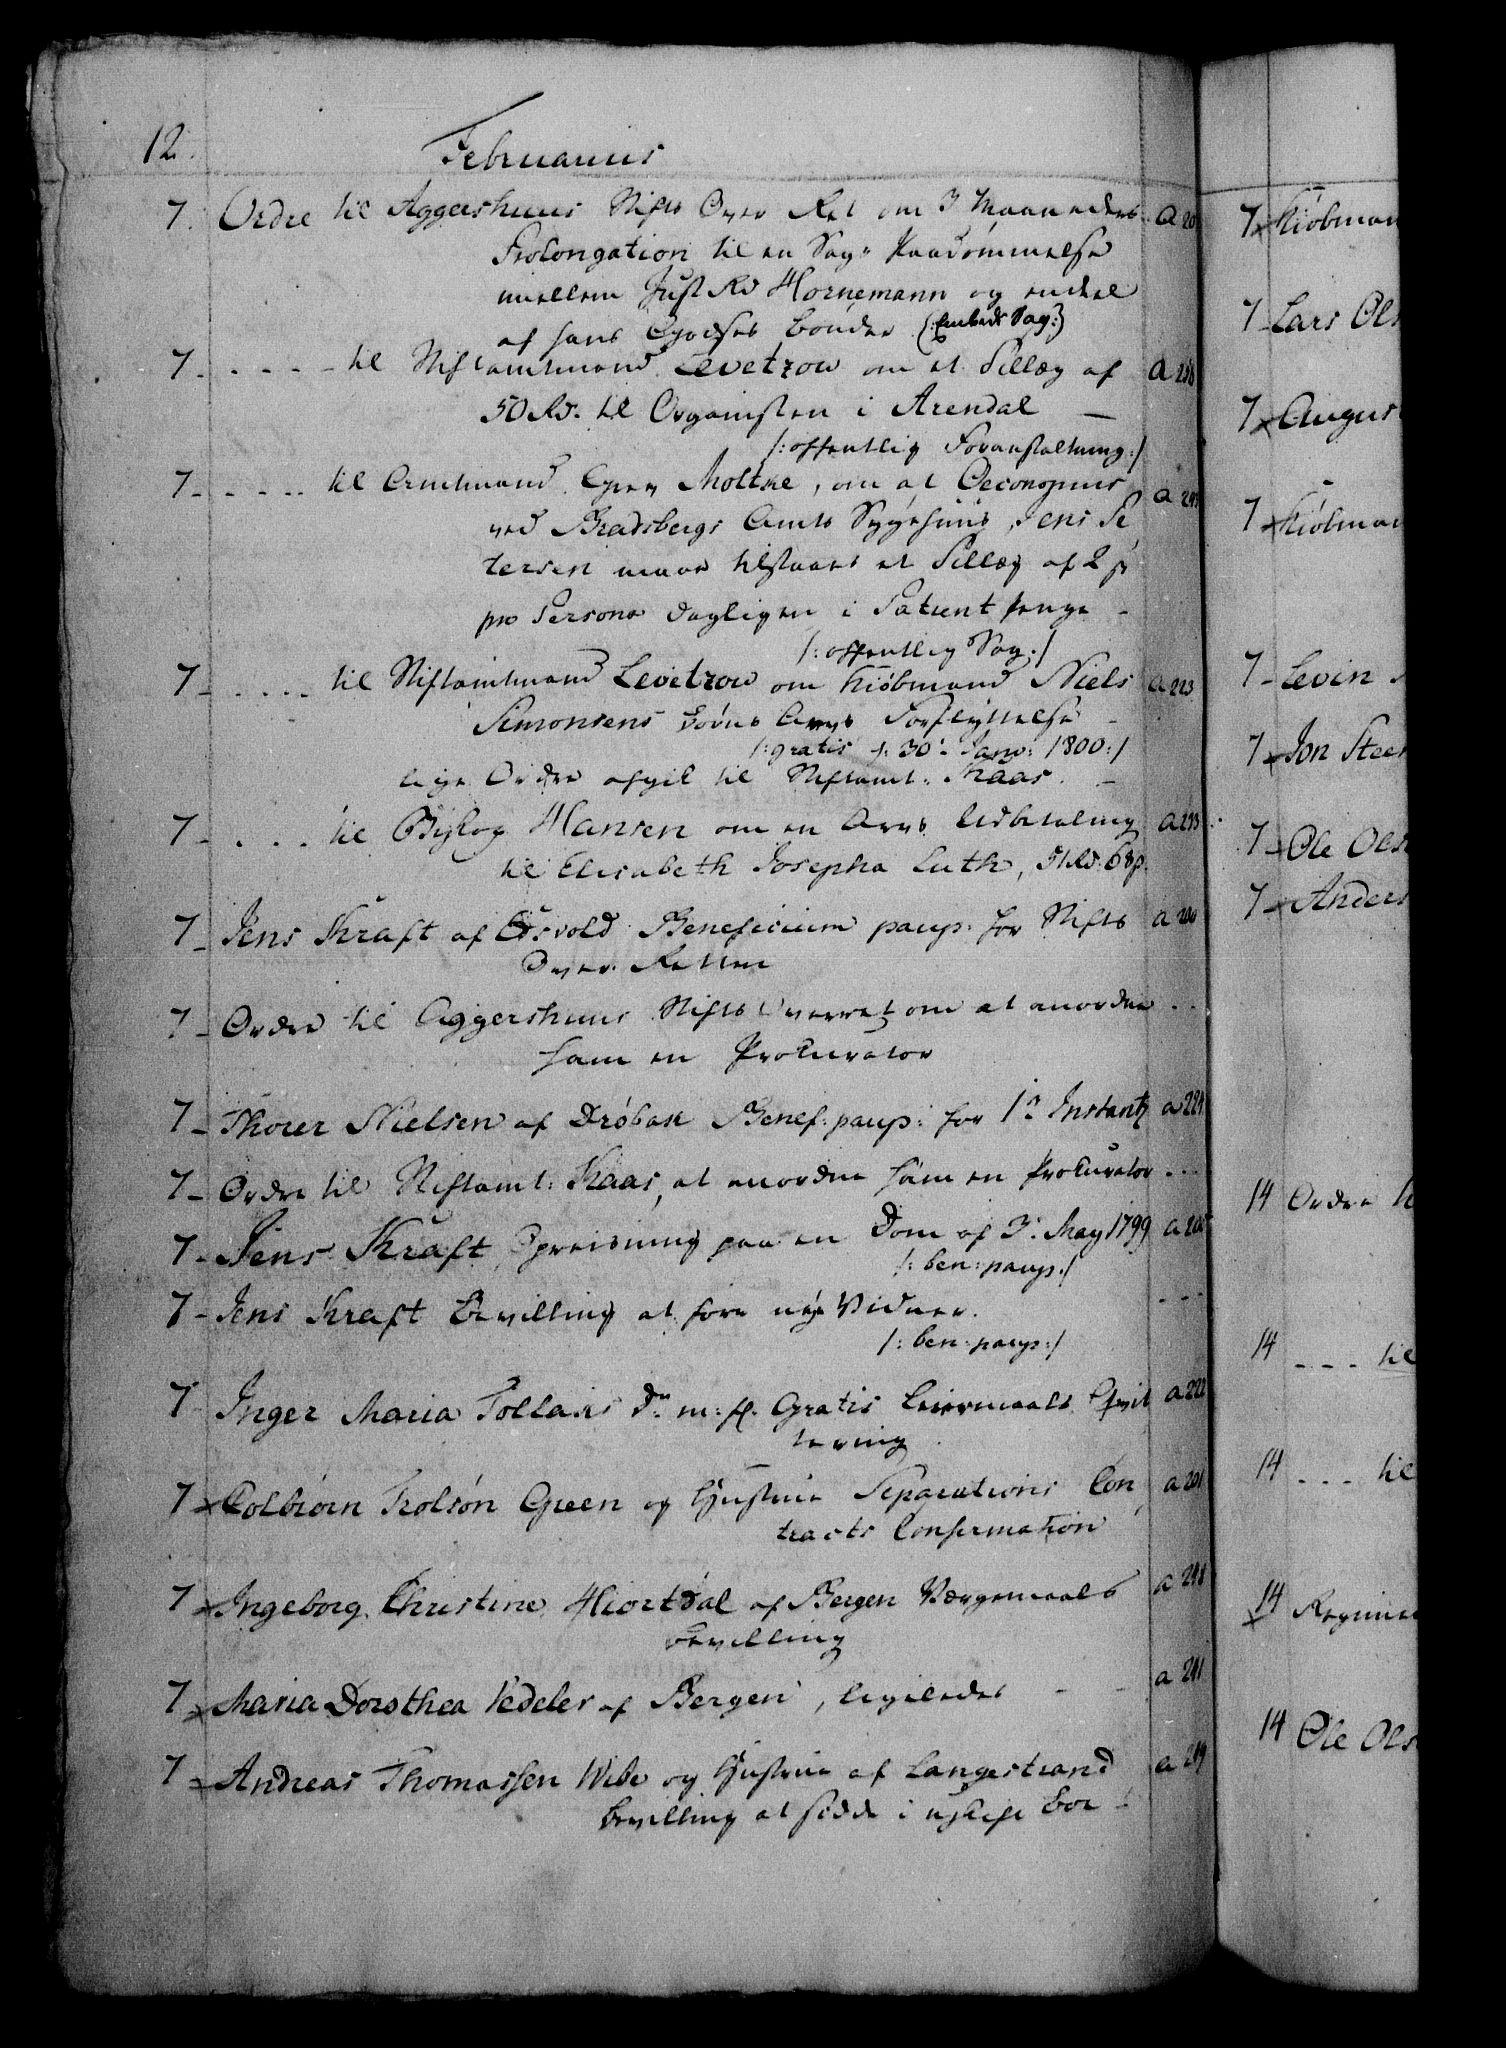 12.
Februarius
7. Ordre til Aggershuus Stifts Over Ret om 3 Maaneders a 20
Prolongation til en Sags Paadømmelse
imellem Just Rd Hornemann og endeel
af hans Godses Bønder (:Embeds Sag:)
7 - - - - - til Stiftamtmand Levetzow om et Tillæg af a 238
50 Rd. til Organisten i Arendal —
/: offentlig Foranstaltning :/
7 - - - - - til Amtmand Grev Moltke, om at Oeconomus a 243
ved Bradsbergs Amts Sygehuus, Jens Pe
tersen maae tilstaaes et Tillæg af 2 s
pro Persona dagligen i Patient penge -
/: offentlig Sag :/
7 - - - - - til Stiftamtmand Levetzow om Kiöbmand Niels a 223
Simonsens Børns Arvs Forflyttelse -
/: gratis f: 30: Janv: 1800 :/
lige Ordre afgik til Stiftamt: Kaas. -
7 - - - - til Biskop Hansen om en Arvs Udbetaling a 293
til Elisabeth Josepha Luth, 51 Rd. 68 s.
7 - Jens Kraft af Beneficium paup: for Stifts a 200
Over Retten
7 - Ordre til Aggershuus Stifts Overret om at anordne - - -
ham en Prokurator
7 - Thorer Nielsen af Drøbak Benef: paup: for 1te Instantz a 221
7 - Ordre til Stiftamt: Kaas, at anordne ham en Prokurator - - -
7 - Jens Kraft Opreisning paa en Dom af 3: May 1799 a 200
/: ben: paup: /
7 - Jens Kraft Bevilling at føre nye Vidner. - - -
/: ben: paup: /
7 Inger Maria Tollaks Dr m: fl. Gratis Leiermaals Qvit a 222
tering
7 - Colbiørn Trolsøn Green og Hustrue Separations Con a 201
tracts Confirmation
7 - Ingeborg Christine Hiortdal af Bergen Værgemaals a 248
Bevilling
7 - Maria Dorothea Vedeler af Bergen, ligeledes - - a 241
7 - Andreas Thomassen Wibe og Hustrue af Langestrand a 249
Bevilling at sidde i uskift Boe -
7 Kiöbman
7 - Lars Ols
7 August
7 Kiöbman
7 - Levin
7 Jon Stee
7 - Ole Ols
7 - Anders
14 Ordre
14 - - - til
14 - - - til
14
14 Ole Ols